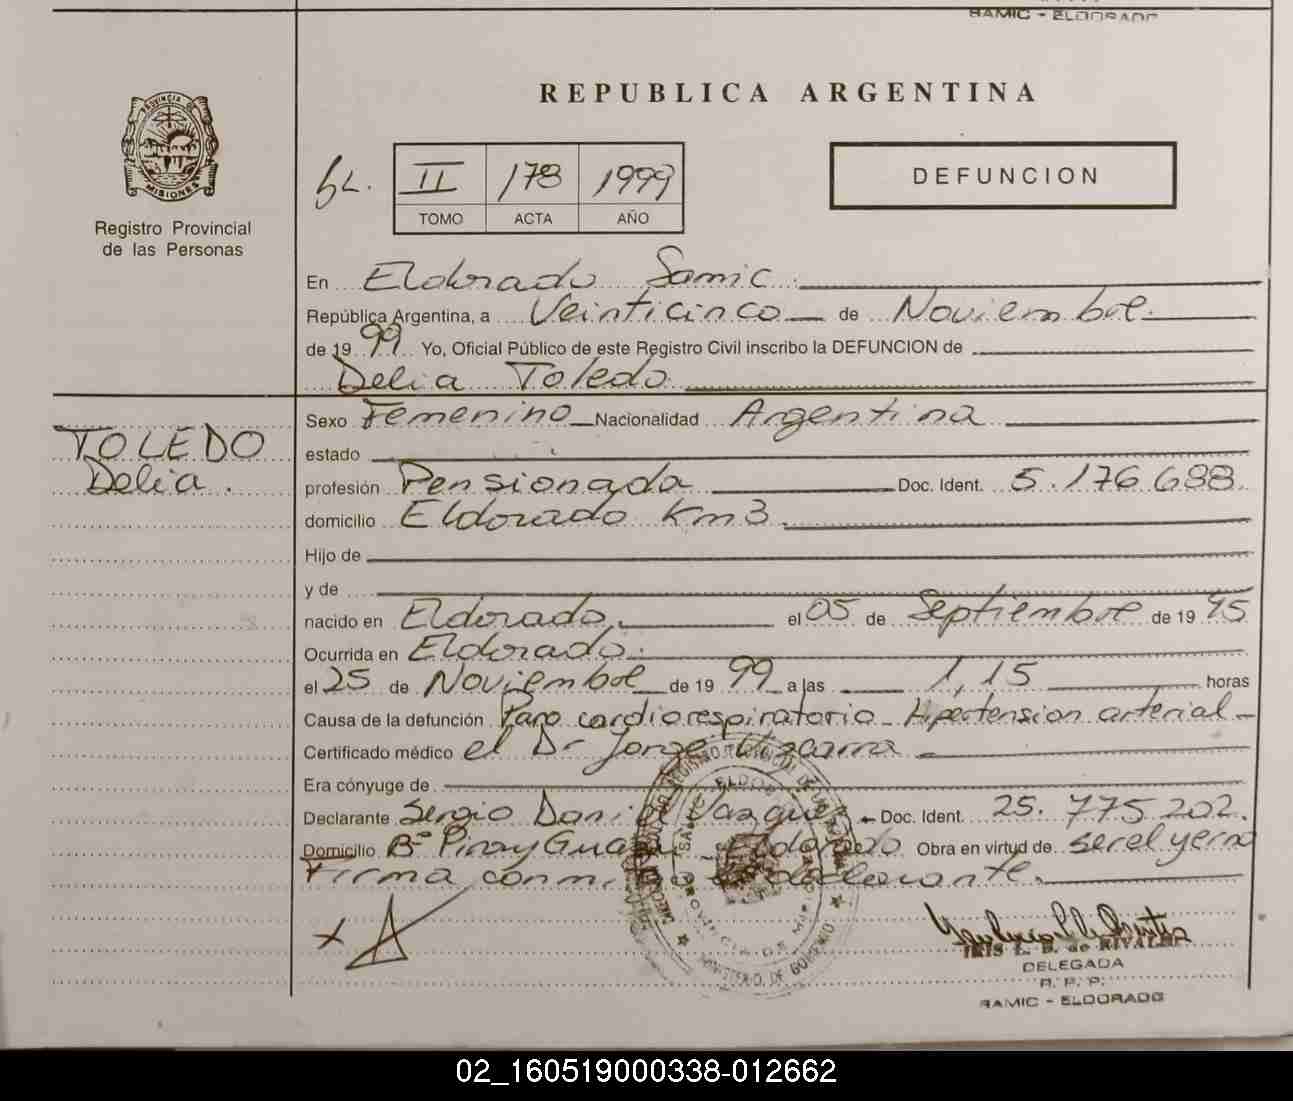 SAMIC - ELDORADO
REPUBLICA ARGENTINA
PROVINCIA DE MISIONES
Registro Provincial
de las Personas
II 178 1999
TOMO ACTA AÑO
DEFUNCION
En Eldorado Samic
República Argentina, a Veinticinco de Noviembre.
de 19 99 Yo, Oficial Público de este Registro Civil inscribo la DEFUNCION de
Delia Toledo
TOLEDO
Delia.
Sexo Femenino Nacionalidad Argentina
estado
profesión Pensionada Doc. Ident. 5.176.688
domicilio Eldorado Km3
Hijo de
y de
nacido en Eldorado el 05 de Septiembre de 19 45
Ocurrida en Eldorado.
el 25 de Noviembre de 19 99 a las 1,15 horas
Causa de la defunción Paro cardiorespiratorio - Hipertension arterial -
Certificado médico el Dr Jorge
Era cónyuge de
Declarante Sergio Daniel Vazquez Doc. Ident. 25.775.202.
Domicilio Bº Piray Guazu - Eldorado Obra en virtud de ser el yerno
Firma conmigo el declarante.
IRIS L. B. de
DELEGADA
R. P. P.
SAMIC - ELDORADO
MINISTERIO DE GOBIERNO
02_160519000338-012662